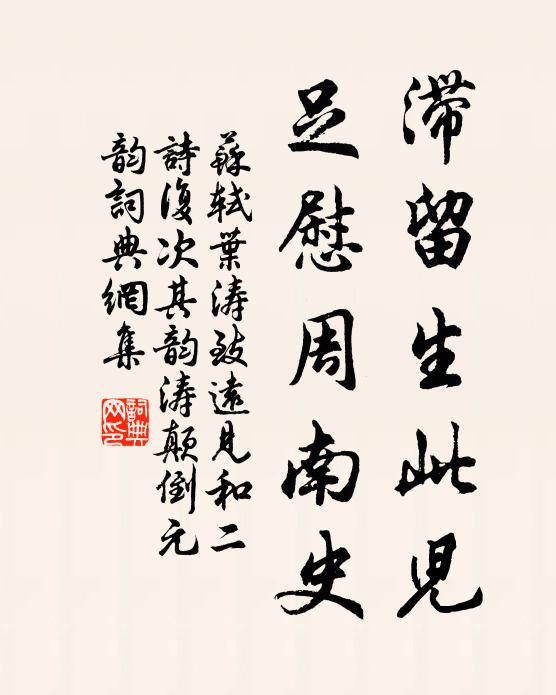 滯留生此兒
足慰周南史
蘇軾葉濤致遠見和二
詩復次其韵濤顛倒元
韵詞典網集
詞典
网印